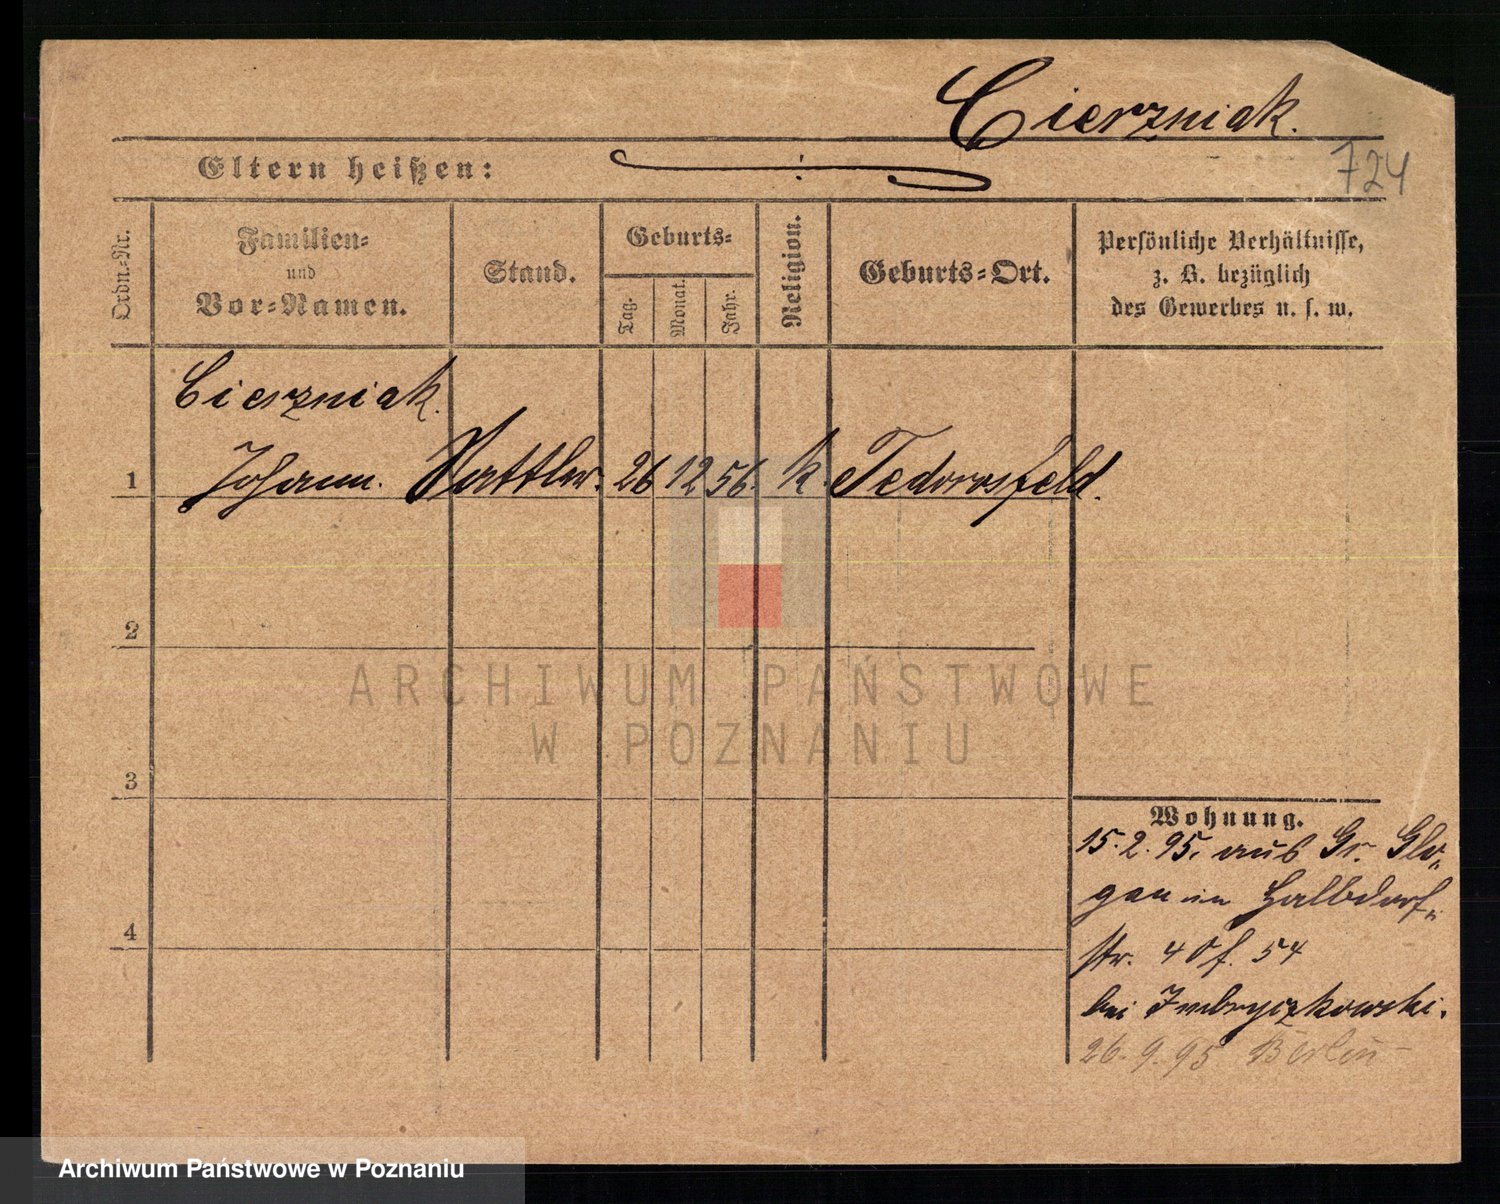 Cierzniak.
724
Eltern heißen:
Ordn.-Nr.
Familien-
und
Vor-Namen.
Stand.
Geburts-
Tag.
Monat.
Jahr.
Religion.
Geburts-Ort.
Persönliche Verhältnisse,
z. B. bezüglich
des Gewerbes u. s. w.
Cierzniak.
1 Johann. Sattler. 26 12 56. k. Tedorosfeld.
2
3
4
Wohnung.
15.2.95. aus Gr. Glo-
gau in Halbdorf-
str. 4 54
bei
26.9.95 Berlin
ARCHIWUM PAŃSTWOWE
W POZNANIU
Archiwum Państwowe w Poznaniu